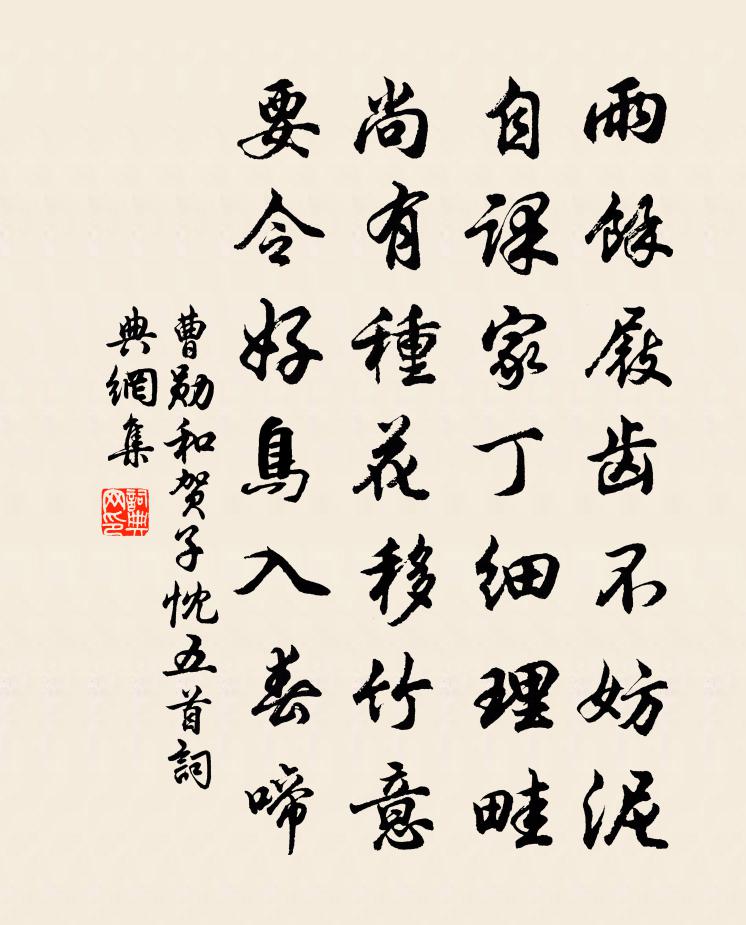 雨餘屐齒不妨泥
自課家丁細理畦
尚有種花移竹意
要令好鳥入春啼
曹勛和賀子忱五首詞
典網集
詞典
网印